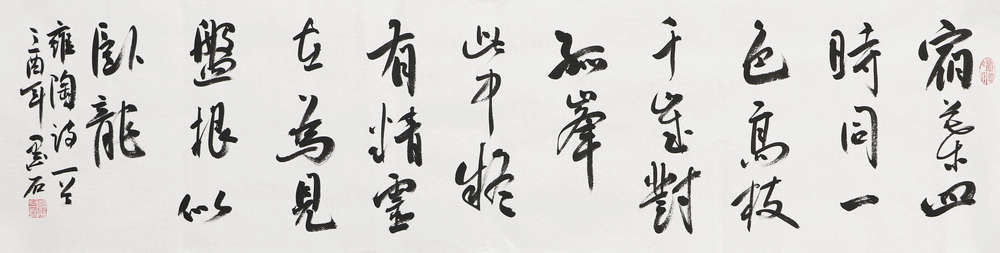 宿葉四
時同一
色高枝
千歲對
孤峯
此中疑
有精靈
在為見
盤根似
臥龍
雍陶詩一首
丁酉年墨石